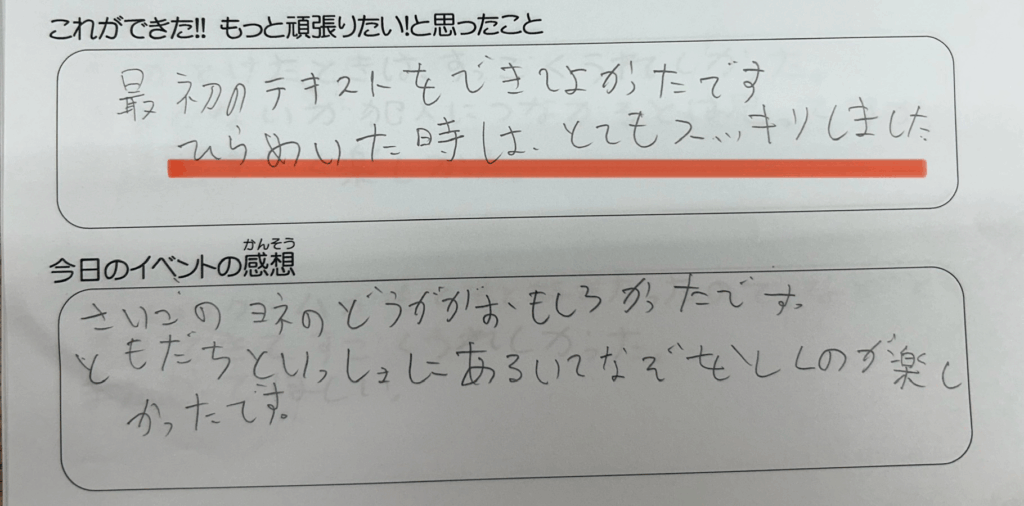 これができた!! もっと頑張りたい!と思ったこと
最初のテキストをできてよかったです
ひらめいた時は、とてもスッキリしました
かんそう
今日のイベントの感想
さいごのヨネのどうががおもしろかったです。
ともだちといっしょにあるいてなぞをとくのが楽し
かったです。